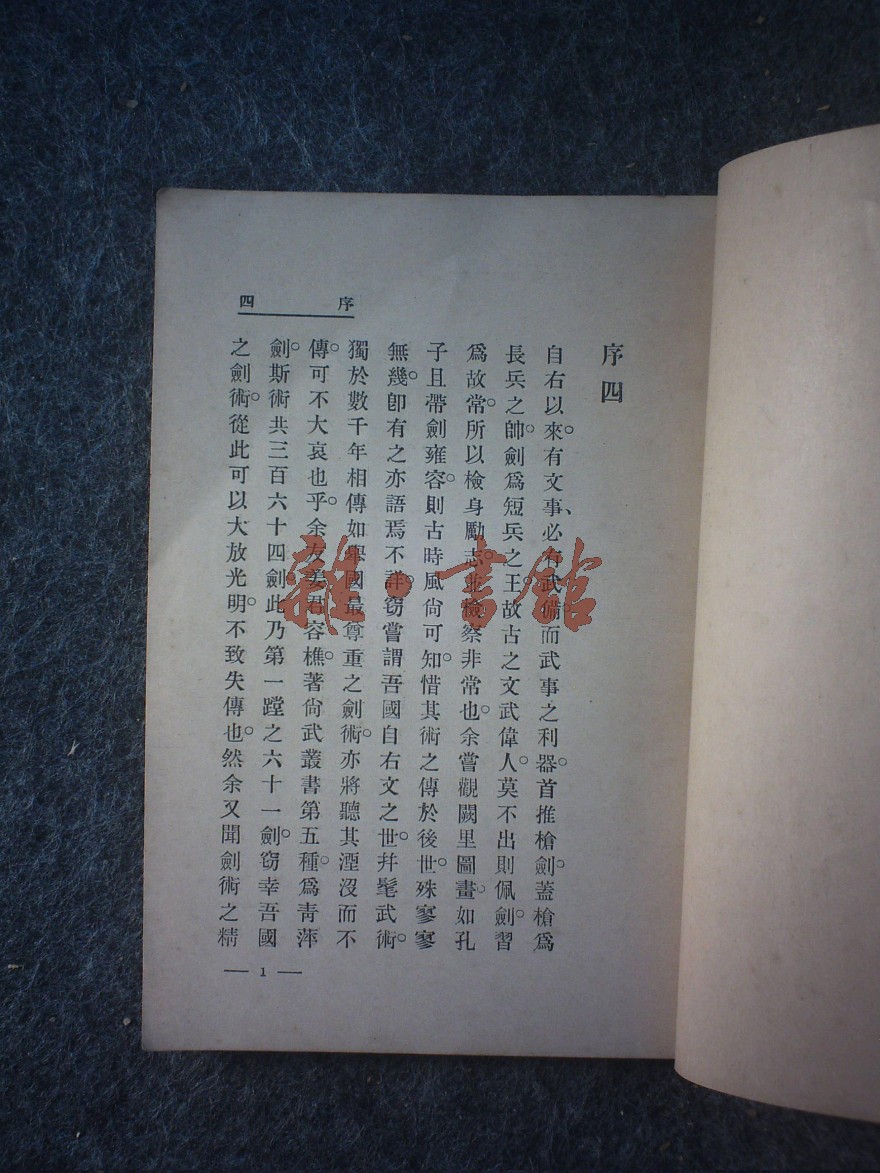 序四
序四
自右以來。有文事、必有武備。而武事之利器。首推槍劍。蓋槍爲
長兵之帥。劍爲短兵之王。故古之文武偉人。莫不出則佩劍。習
爲故常。所以檢身勵志。並檢察非常也。余嘗觀闕里圖畫。如孔
子且帶劍雍容。則古時風尙可知。惜其術之傳於後世。殊寥寥
無幾。卽有之亦語焉不詳。窃嘗謂吾國自右文之世。弁髦武術。
獨於數千年相傳如舉國最尊重之劍術。亦將聽其湮沒而不
傳。可不大哀也乎。余友姜君容樵。著尙武叢書第五種。爲靑萍
劍。斯術共三百六十四劍。此乃第一蹚之六十一劍。窃幸吾國
之劍術。從此可以大放光明。不致失傳也。然余又聞劍術之精
— 1 —
雜·書館